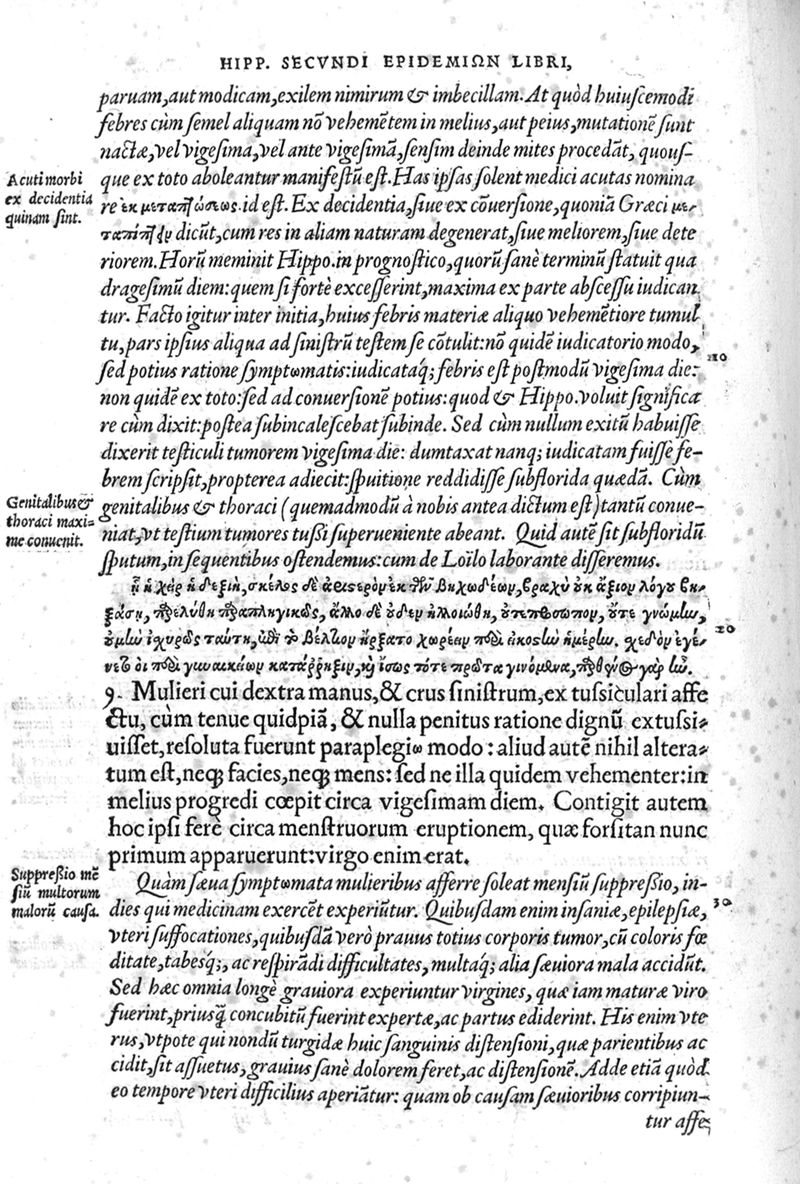 HIPP. SECVNDI EPIDEMIΩN LIBRI,
paruam, aut modicam, exilem nimirum & imbecillam. At quòd huiuſcemodi
febres cùm ſemel aliquam nō vehemētem in melius, aut peius, mutationē ſunt
nactæ, vel vigeſima, vel ante vigeſimā, ſenſim deinde mites procedāt, quouſ-
que ex toto aboleantur manifeſtū eſt. Has ipſas ſolent medici acutas nomina
Acuti morbi
ex decidentia
quinam ſint.
re ἐκ μεταπτώσεως. id eſt. Ex decidentia, ſiue ex cōuerſione, quoniā Græci με-
ταπίπτειν dicūt, cum res in aliam naturam degenerat, ſiue meliorem, ſiue dete
riorem. Horū meminit Hippo. in prognoſtico, quorū ſanè terminū ſtatuit qua
drageſimū diem: quem ſi fortè exceſſerint, maxima ex parte abſceſſu iudican
tur. Facto igitur inter initia, huius febris materiæ aliquo vehemētiore tumul
tu, pars ipſius aliqua ad ſiniſtrū teſtem ſe cōtulit: nō quidē iudicatorio modo,
10
ſed potius ratione ſymptωmatis: iudicataq́; febris eſt poſtmodū vigeſima die:
non quidē ex toto: ſed ad conuerſionē potius: quod & Hippo. voluit ſignifica
re cùm dixit: poſtea ſubincaleſcebat ſubinde. Sed cùm nullum exitū habuiſſe
dixerit teſticuli tumorem vigeſima die: dumtaxat nanq; iudicatam fuiſſe fe-
brem ſcripſit, propterea adiecit: ſpuitione reddidiſſe ſubflorida quædā. Cùm
Genitalibus &
thoraci maxi=
me conuenit.
genitalibus & thoraci (quemadmodū à nobis antea dictum eſt) tantū conue-
niat, vt teſtium tumores tuſſi ſuperueniente abeant. Quid autē ſit ſubfloridū
ſputum, in ſequentibus oſtendemus: cum de Loïlo laborante diſſeremus.
ᾗ ἡ χεὶρ ἡ δεξιὴ, σκέλος δὲ ἀριστερὸν ἐκ τῶν βηχωδέων, βραχὺ οὐκ ἄξιον λόγου βη-
ξάσῃ, παρελύθη παραπληγικῶς, ἄλλο δὲ οὐδὲν ἠλλοιώθη, οὔτε πρόσωπον, οὔτε γνώμην,
20
9. Mulieri cui dextra manus, & crus ſiniſtrum, ex tuſsiculari affe
ctu, cùm tenue quidpiā, & nulla penitus ratione dignū extuſsi-
uiſſet, reſoluta fuerunt paraplegiω modo: aliud autē nihil altera-
tum eſt, neq; facies, neq; mens: ſed ne illa quidem vehementer: in
melius progredi cœpit circa vigeſimam diem. Contigit autem
hoc ipſi ferè circa menſtruorum eruptionem, quæ forſitan nunc
primum apparuerunt: virgo enim erat.
Suppreſsio mē
ſiū multorum
malorū cauſa.
Quàm ſæua ſymptωmata mulieribus afferre ſoleat menſiū ſuppreſsio, in-
dies qui medicinam exercēt experiūtur. Quibuſdam enim inſaniæ, epilepſiæ,
30
vteri ſuffocationes, quibuſdā verò prauus totius corporis tumor, cū coloris fœ
ditate, tabesq́;, ac reſpirādi difficultates, multaq́; alia ſæuiora mala accidūt.
Sed hæc omnia longè grauiora experiuntur virgines, quæ iam maturæ viro
fuerint, priusq̄ concubitū fuerint expertæ, ac partus ediderint. His enim vte
rus, vtpote qui nondū turgidæ huic ſanguinis diſtenſioni, quæ parientibus ac
cidit, ſit aſſuetus, grauius ſanè dolorem feret, ac diſtenſionē. Adde etiā quòd
eo tempore vteri difficilius aperiātur: quam ob cauſam ſæuioribus corripiun-
tur affe